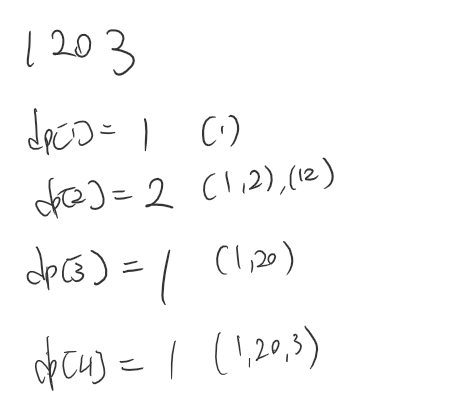 1203
dp[1] = 1 (1)
dp[2] = 2 (1,2),(12)
dp[3] = 1 (1,20)
dp[4] = 1 (1,20,3)